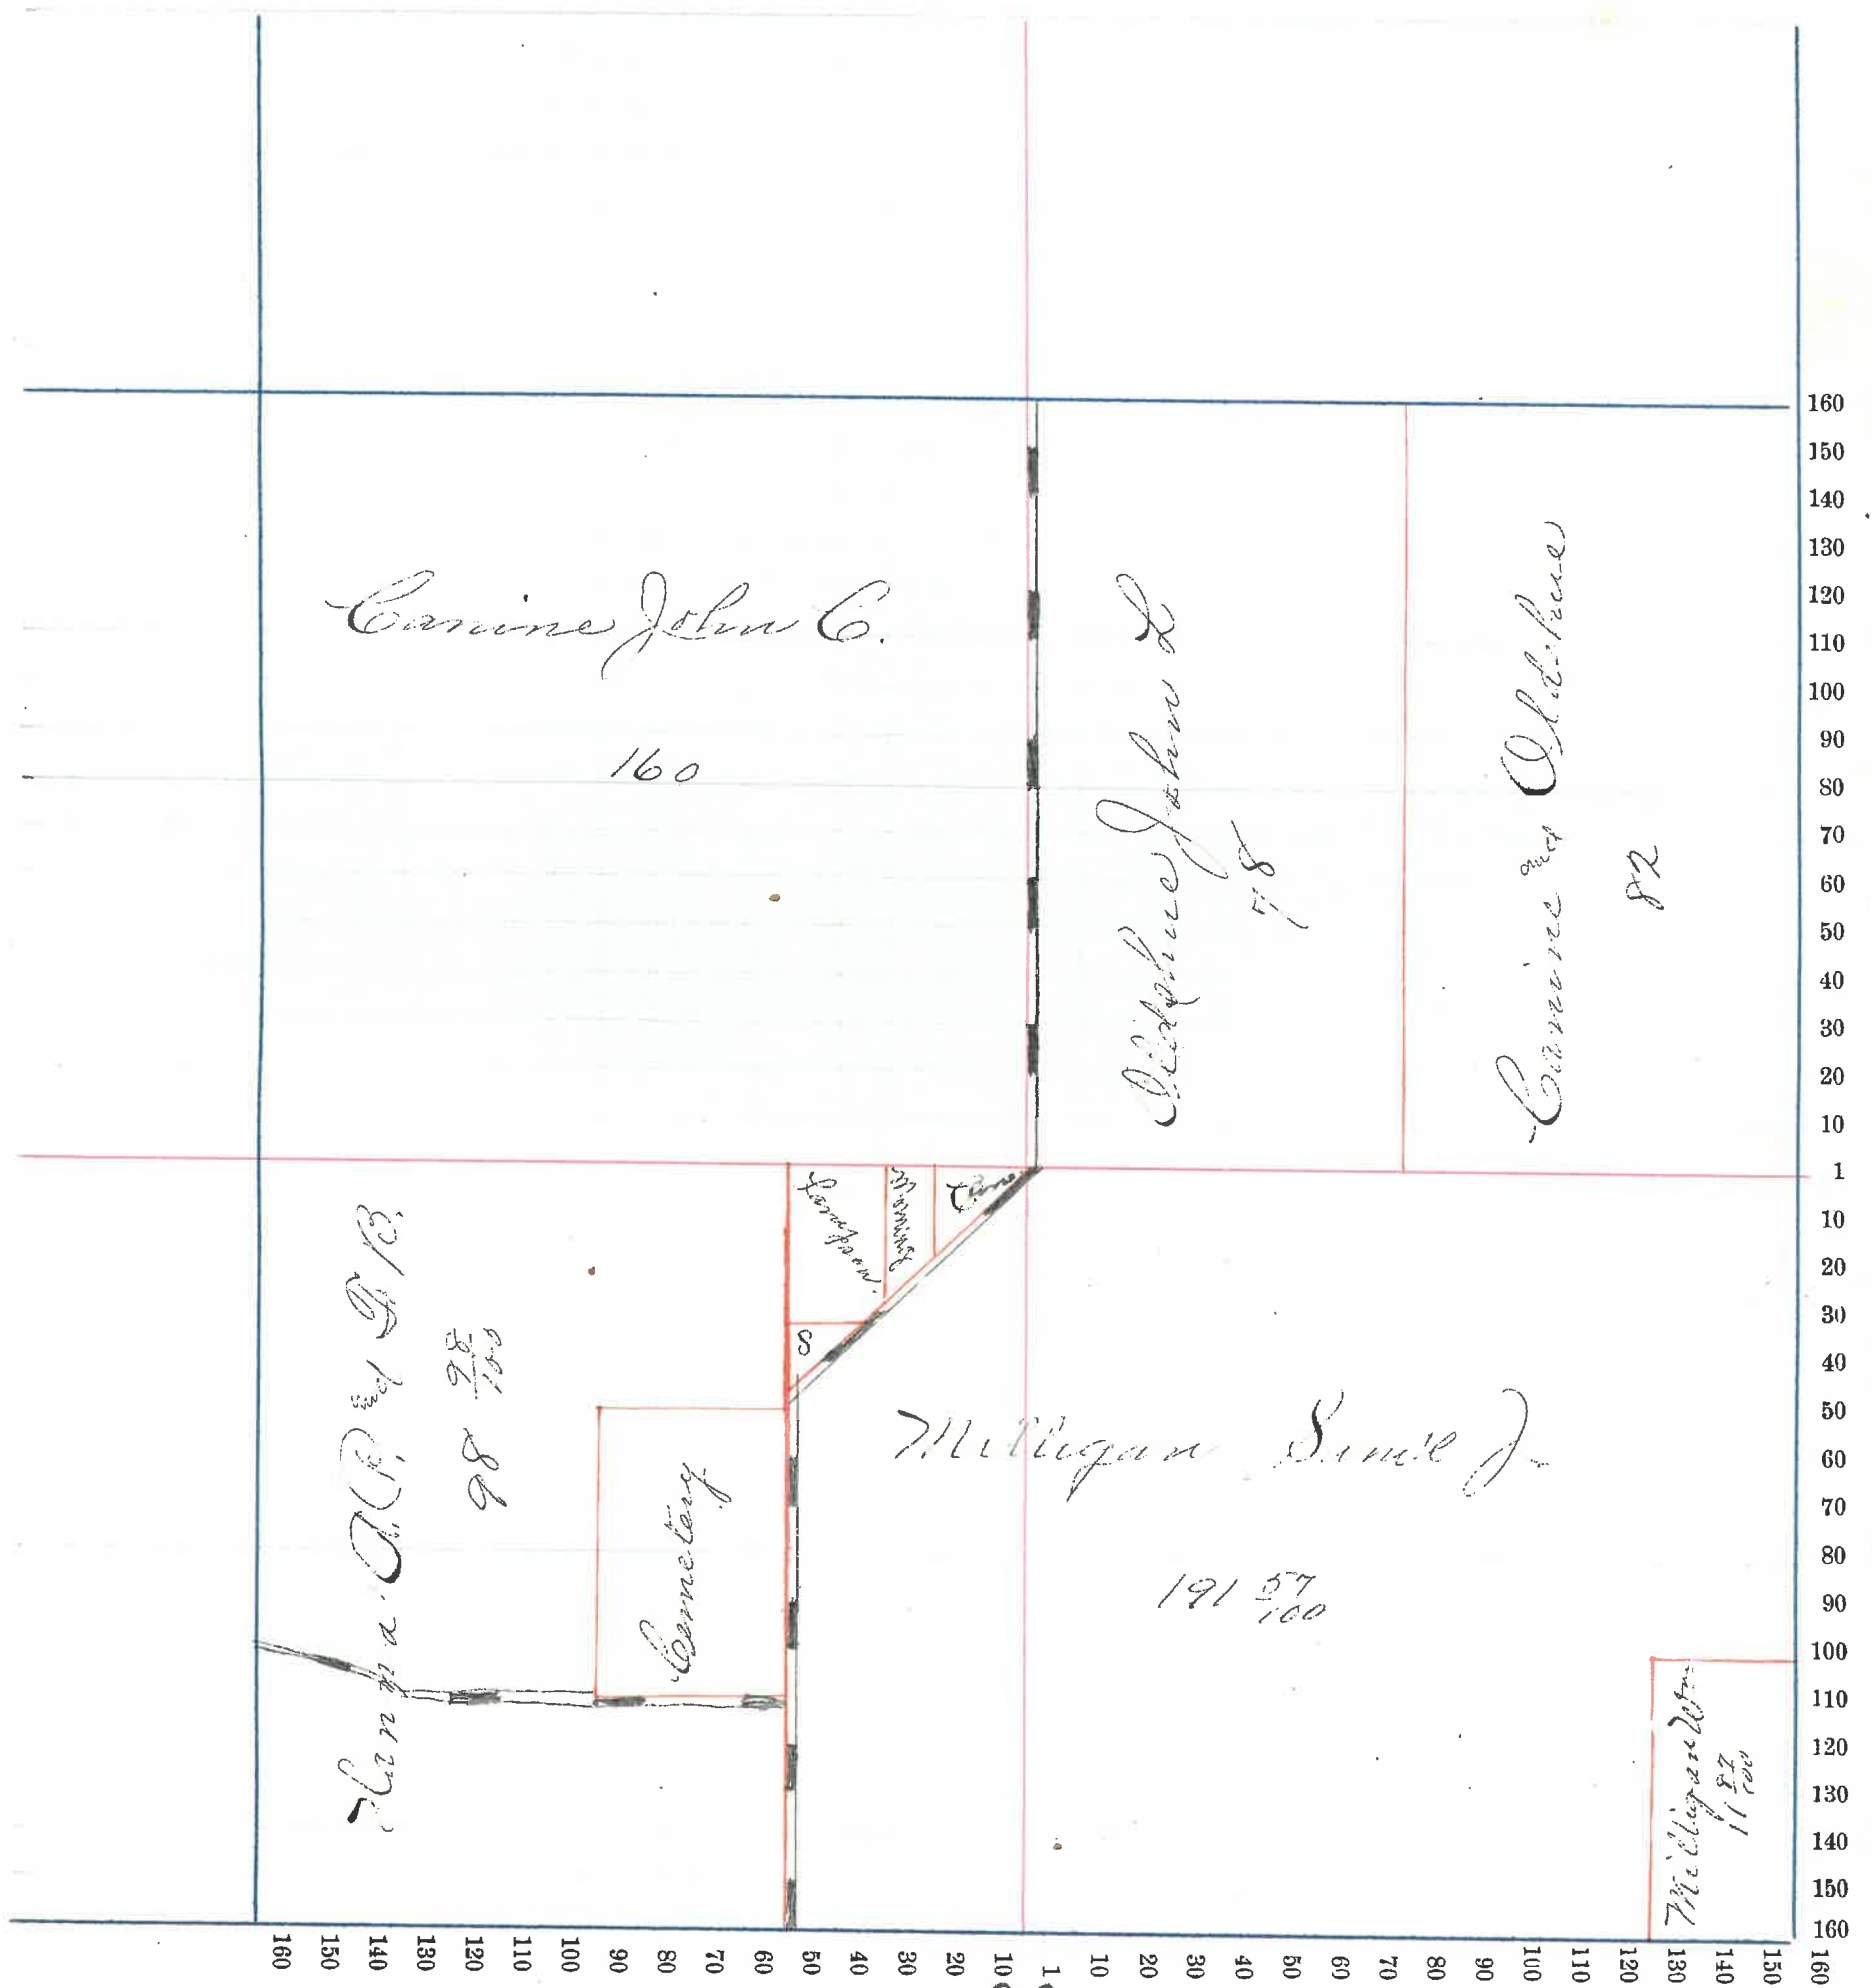 Canine John C.
160
Oldshue John L
78
Canine and Oldshue
82
Hanna A. P. and T. B.
98 98/100
Cemetery
S
Milligan
191 57/100
Milligan Wm
11 87/100
160
150
140
130
120
110
100
90
80
70
60
50
40
30
20
10
1
10
20
30
40
50
60
70
80
90
100
110
120
130
140
150
160
160 150 140 130 120 110 100 90 80 70 60 50 40 30 20 10 1 10 20 30 40 50 60 70 80 90 100 110 120 130 140 150 160